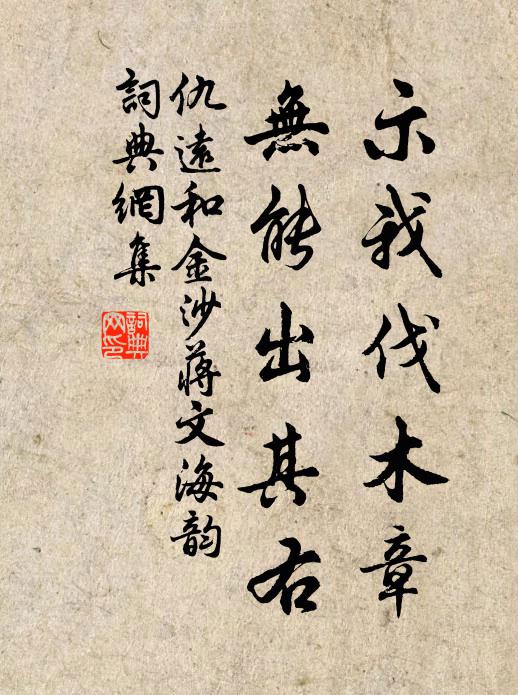 示我伐木章
無能出其右
仇遠和金沙蔣文海韵
詞典網集
詞典網印